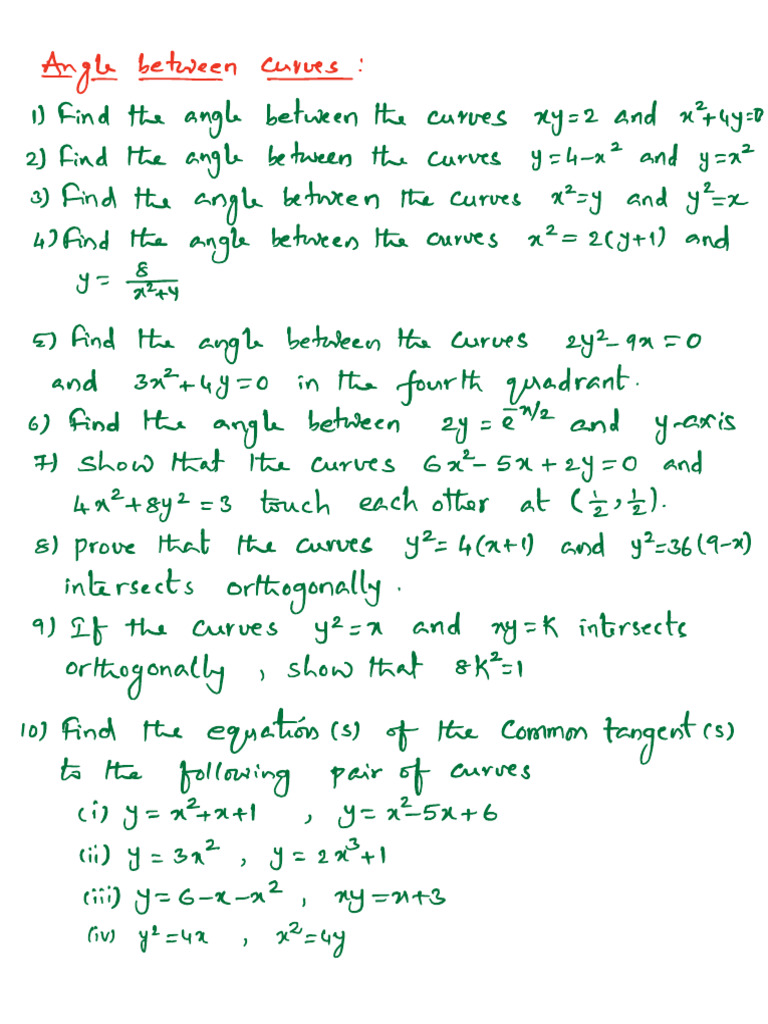 Angle between curves :
1) Find the angle between the curves xy=2 and x²+4y=0
2) Find the angle between the curves y=4-x² and y=x²
3) Find the angle between the curves x²=y and y²=x
4) Find the angle between the curves x²=2(y+1) and
y = 8/(x²+4)
5) Find the angle between the curves 2y²-9x=0
and 3x²+4y=0 in the fourth quadrant.
6) Find the angle between 2y = e^(-x/2) and y-axis
7) Show that the curves 6x²-5x+2y=0 and
4x²+8y²=3 touch each other at (1/2, 1/2).
8) prove that the curves y²=4(x+1) and y²=36(9-x)
intersects orthogonally.
9) If the curves y²=x and xy=K intersects
orthogonally, show that 8K²=1
10) Find the equation(s) of the common tangent(s)
to the following pair of curves
(i) y=x²+x+1 , y=x²-5x+6
(ii) y=3x² , y=2x³+1
(iii) y=6-x-x² , xy=x+3
(iv) y²=4x , x²=4y